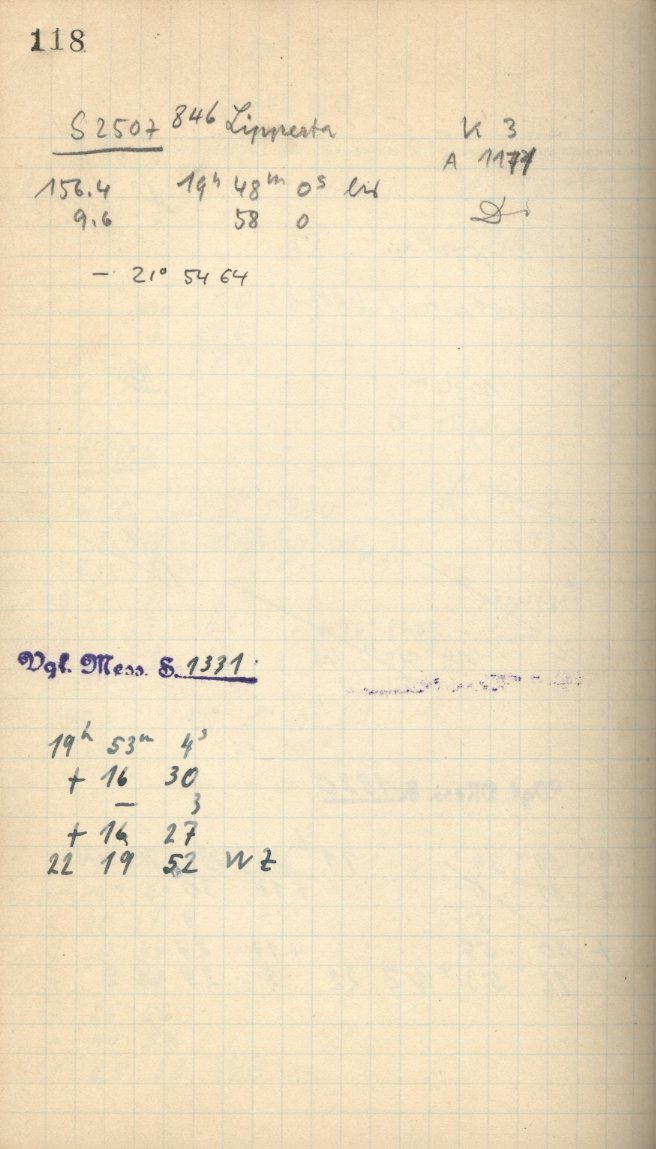 118
S 2507 846 Lipperta K 3
A 1171
156.4 19h 48m 0s bis
9.6 58 0
− 21° 54 64
Vgl. Mess. S. 1331
19h 53m 4s
+ 16 30
− 3
+ 16 27
22 19 52 WZ